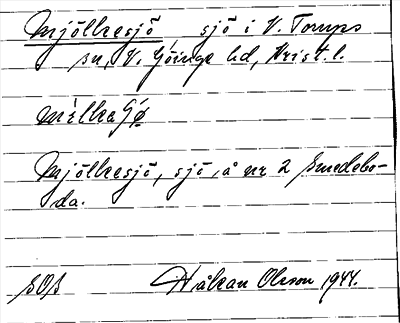 Mjölkesjö, sjö i V. Torups
sn, V. Göinge hd, Krist. l.
Mjölkesjö, sjö, å nr 2 Smedebo-
da.
SOS Håkan Olsson 1944.